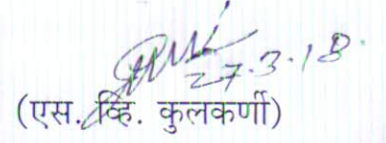 27.3.18.
(एस. व्हि. कुलकर्णी)